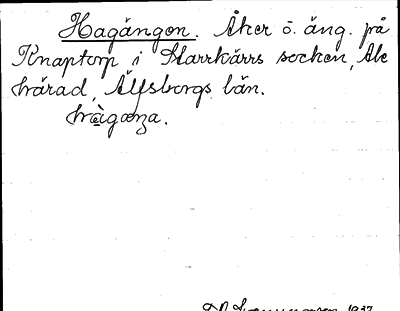 Hagängen. Åker o. äng. på
Knaptorp i Starrkärrs socken, Ale
härad, Älfsborgs län.
1937